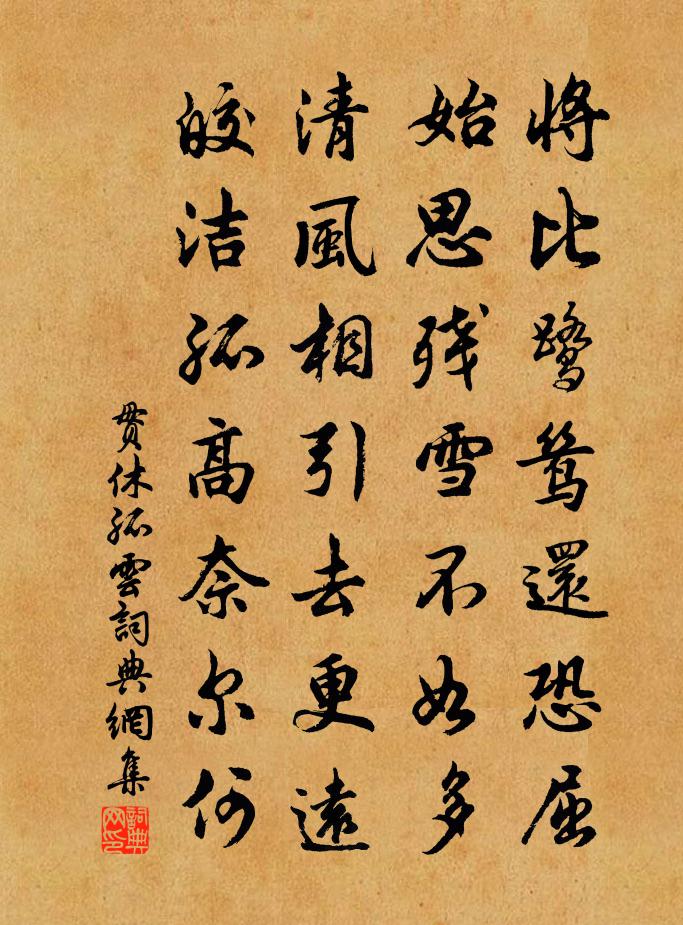 將比鷺鸶還恐屈
始思残雪不如多
清風相引去更遠
皎洁孤高奈尔何
贯休孤雲詞典網集
詞典网印